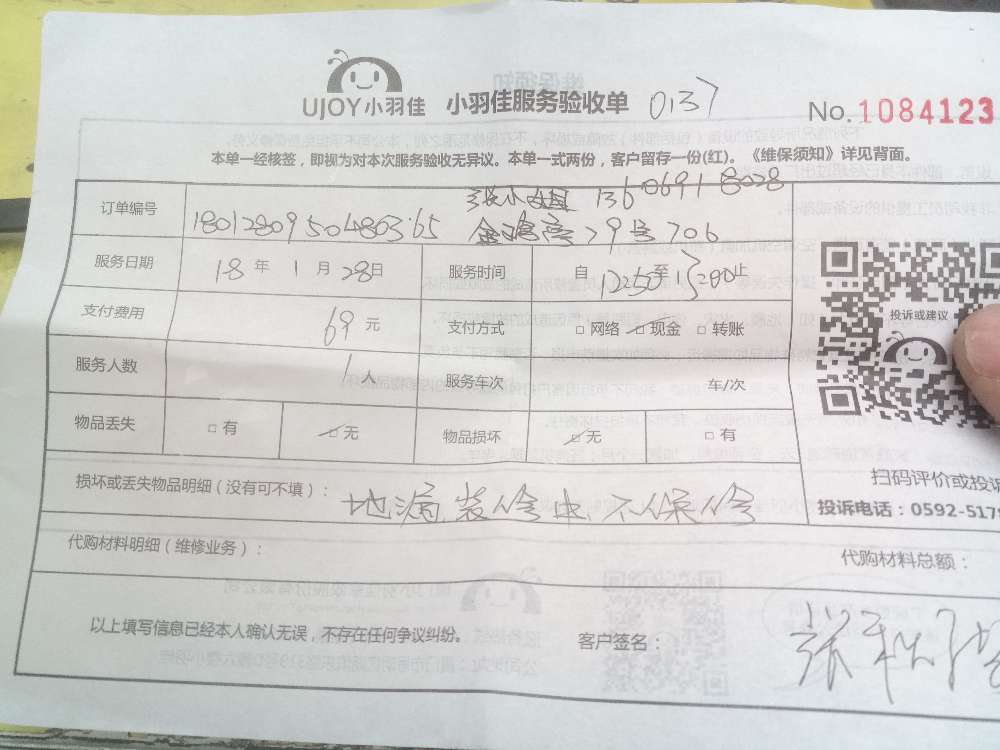 UJOY小羽佳 小羽佳服务验收单 0137
No.1084123
本单一经核签，即视为对本次服务验收无异议。本单一式两份，客户留存一份(红)。《维保须知》详见背面。
张小姐 13606918028
订单编号 18012809504803:65 29号706
服务日期 18年1月28日 服务时间 自12:50至13:00止
支付费用 69元 支付方式 □网络 □现金 □转账
服务人数 1人 服务车次 车/次
物品丢失 □有 □无 物品损坏 □无 □有
投诉或建议
扫码评价或投诉
投诉电话：0592-517
损坏或丢失物品明细（没有可不填）：地漏装修中不保修
代购材料明细（维修业务）： 代购材料总额：
以上填写信息已经本人确认无误，不存在任何争议纠纷。 客户签名：